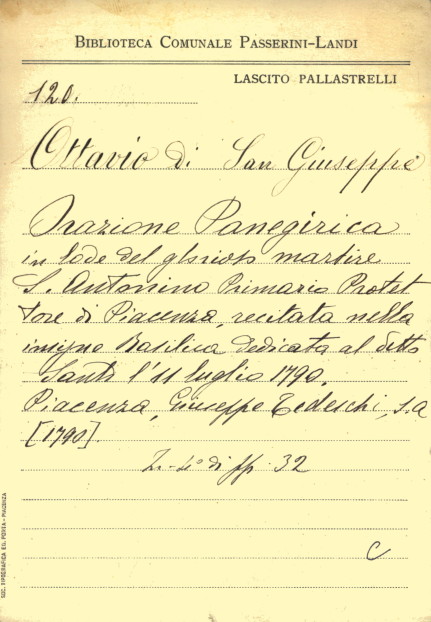 BIBLIOTECA COMUNALE PASSERINI-LANDI
LASCITO PALLASTRELLI
120.
Ottavio di San Giuseppe
Orazione Panegirica
in lode del glorioso martire
S. Antonino Primario Protet
tore di Piacenza, recitata nella
insigne Basilica dedicata al detto
Santo l'11 luglio 1790.
Piacenza, Giuseppe Tedeschi, s.a
[1790].
in-4° di pp. 32
C
SOC. TIPOGRAFICA ED. PORTA - PIACENZA